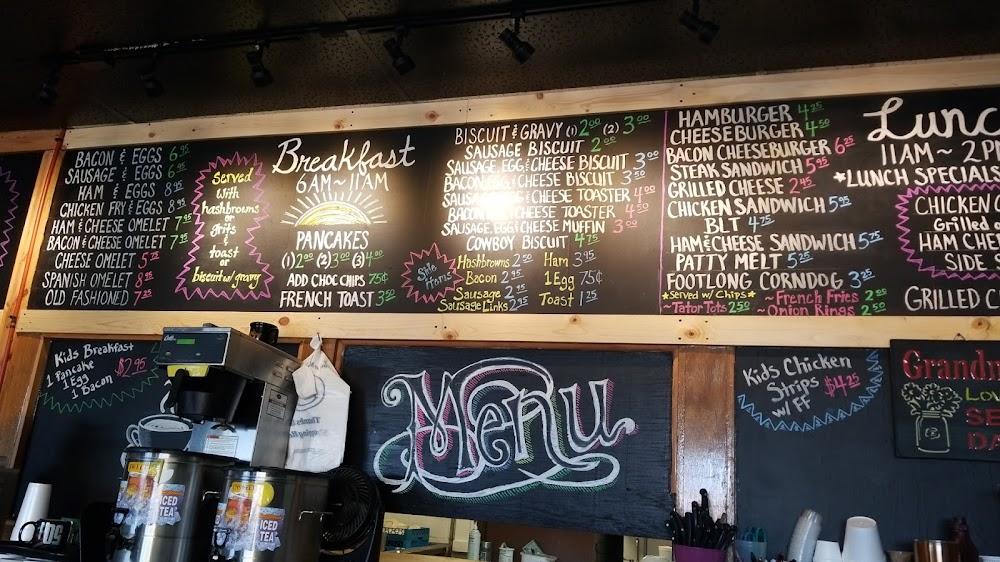 BACON & EGGS 6.95
SAUSAGE & EGGS 6.95
HAM & EGGS 8.95
CHICKEN FRY & EGGS 8.95
HAM & CHEESE OMELET 7.95
BACON & CHEESE OMELET 7.95
CHEESE OMELET 5.75
SPANISH OMELET 8.25
OLD FASHIONED 7.25
Served
with
hashbrowns
or
grits
&
toast
or
biscuit w/gravy
Breakfast
6AM~11AM
PANCAKES
(1) 2.00 (2) 3.00 (3) 4.00
ADD CHOC CHIPS 75¢
FRENCH TOAST 3.50
BISCUIT & GRAVY (1) 2.00 (2) 3.00
SAUSAGE BISCUIT 2.00
SAUSAGE, EGG & CHEESE BISCUIT 3.00
BACON, EGG & CHEESE BISCUIT 3.50
SAUSAGE, EGG & CHEESE TOASTER 4.00
BACON, EGG & CHEESE TOASTER 4.50
SAUSAGE, EGG & CHEESE MUFFIN 3.00
COWBOY BISCUIT 4.75
Side
Items
Hashbrowns 2.50 Ham 3.95
Bacon 2.95 1 Egg 75¢
Sausage 2.95 Toast 1.25
Sausage Links 2.95
HAMBURGER 4.25
CHEESEBURGER 4.50
BACON CHEESEBURGER 6.25
STEAK SANDWICH 5.95
GRILLED CHEESE 2.95
CHICKEN SANDWICH 5.95
BLT 4.75
HAM & CHEESE SANDWICH 5.75
PATTY MELT 5.25
FOOTLONG CORNDOG 3.25
*Served w/ Chips* ~French Fries 2.00
~Tator Tots 2.50 ~Onion Rings 2.50
Lunc
11AM~2P
*LUNCH SPECIALS
CHICKEN
Grilled
HAM CHES
SIDE S
GRILLED C
Kids Breakfast
1 Pancake $2.95
1 Egg
1 Bacon
Menu
Kids Chicken
Strips $4.25
w/ FF
Grandm
Lov
SE
DA
ICED
TEA
ICED
TEA